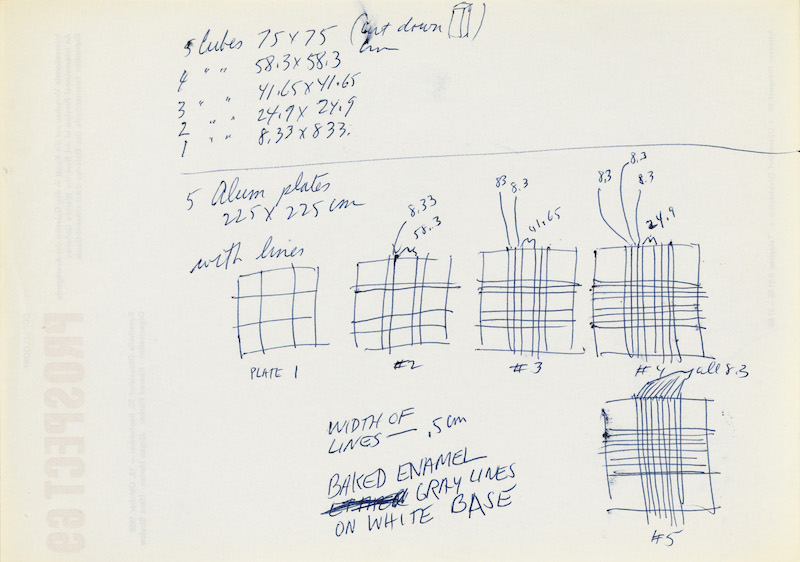 5 Cubes 75 x 75 (cut down
cm
4 " " 58.3 x 58.3
3 " " 41.65 x 41.65
2 " " 24.9 x 24.9
1 " " 8.33 x 833.
5 Alum plates
225 x 225 cm
with lines
8.33
58.3
83 8.3
41.65
8.3
8.3
8.3
24.9
PLATE 1
#2
#3
#4
all 8.3
#5
WIDTH OF
LINES — .5 cm
BAKED ENAMEL
GRAY LINES
ON WHITE BASE
PROSPECT 69